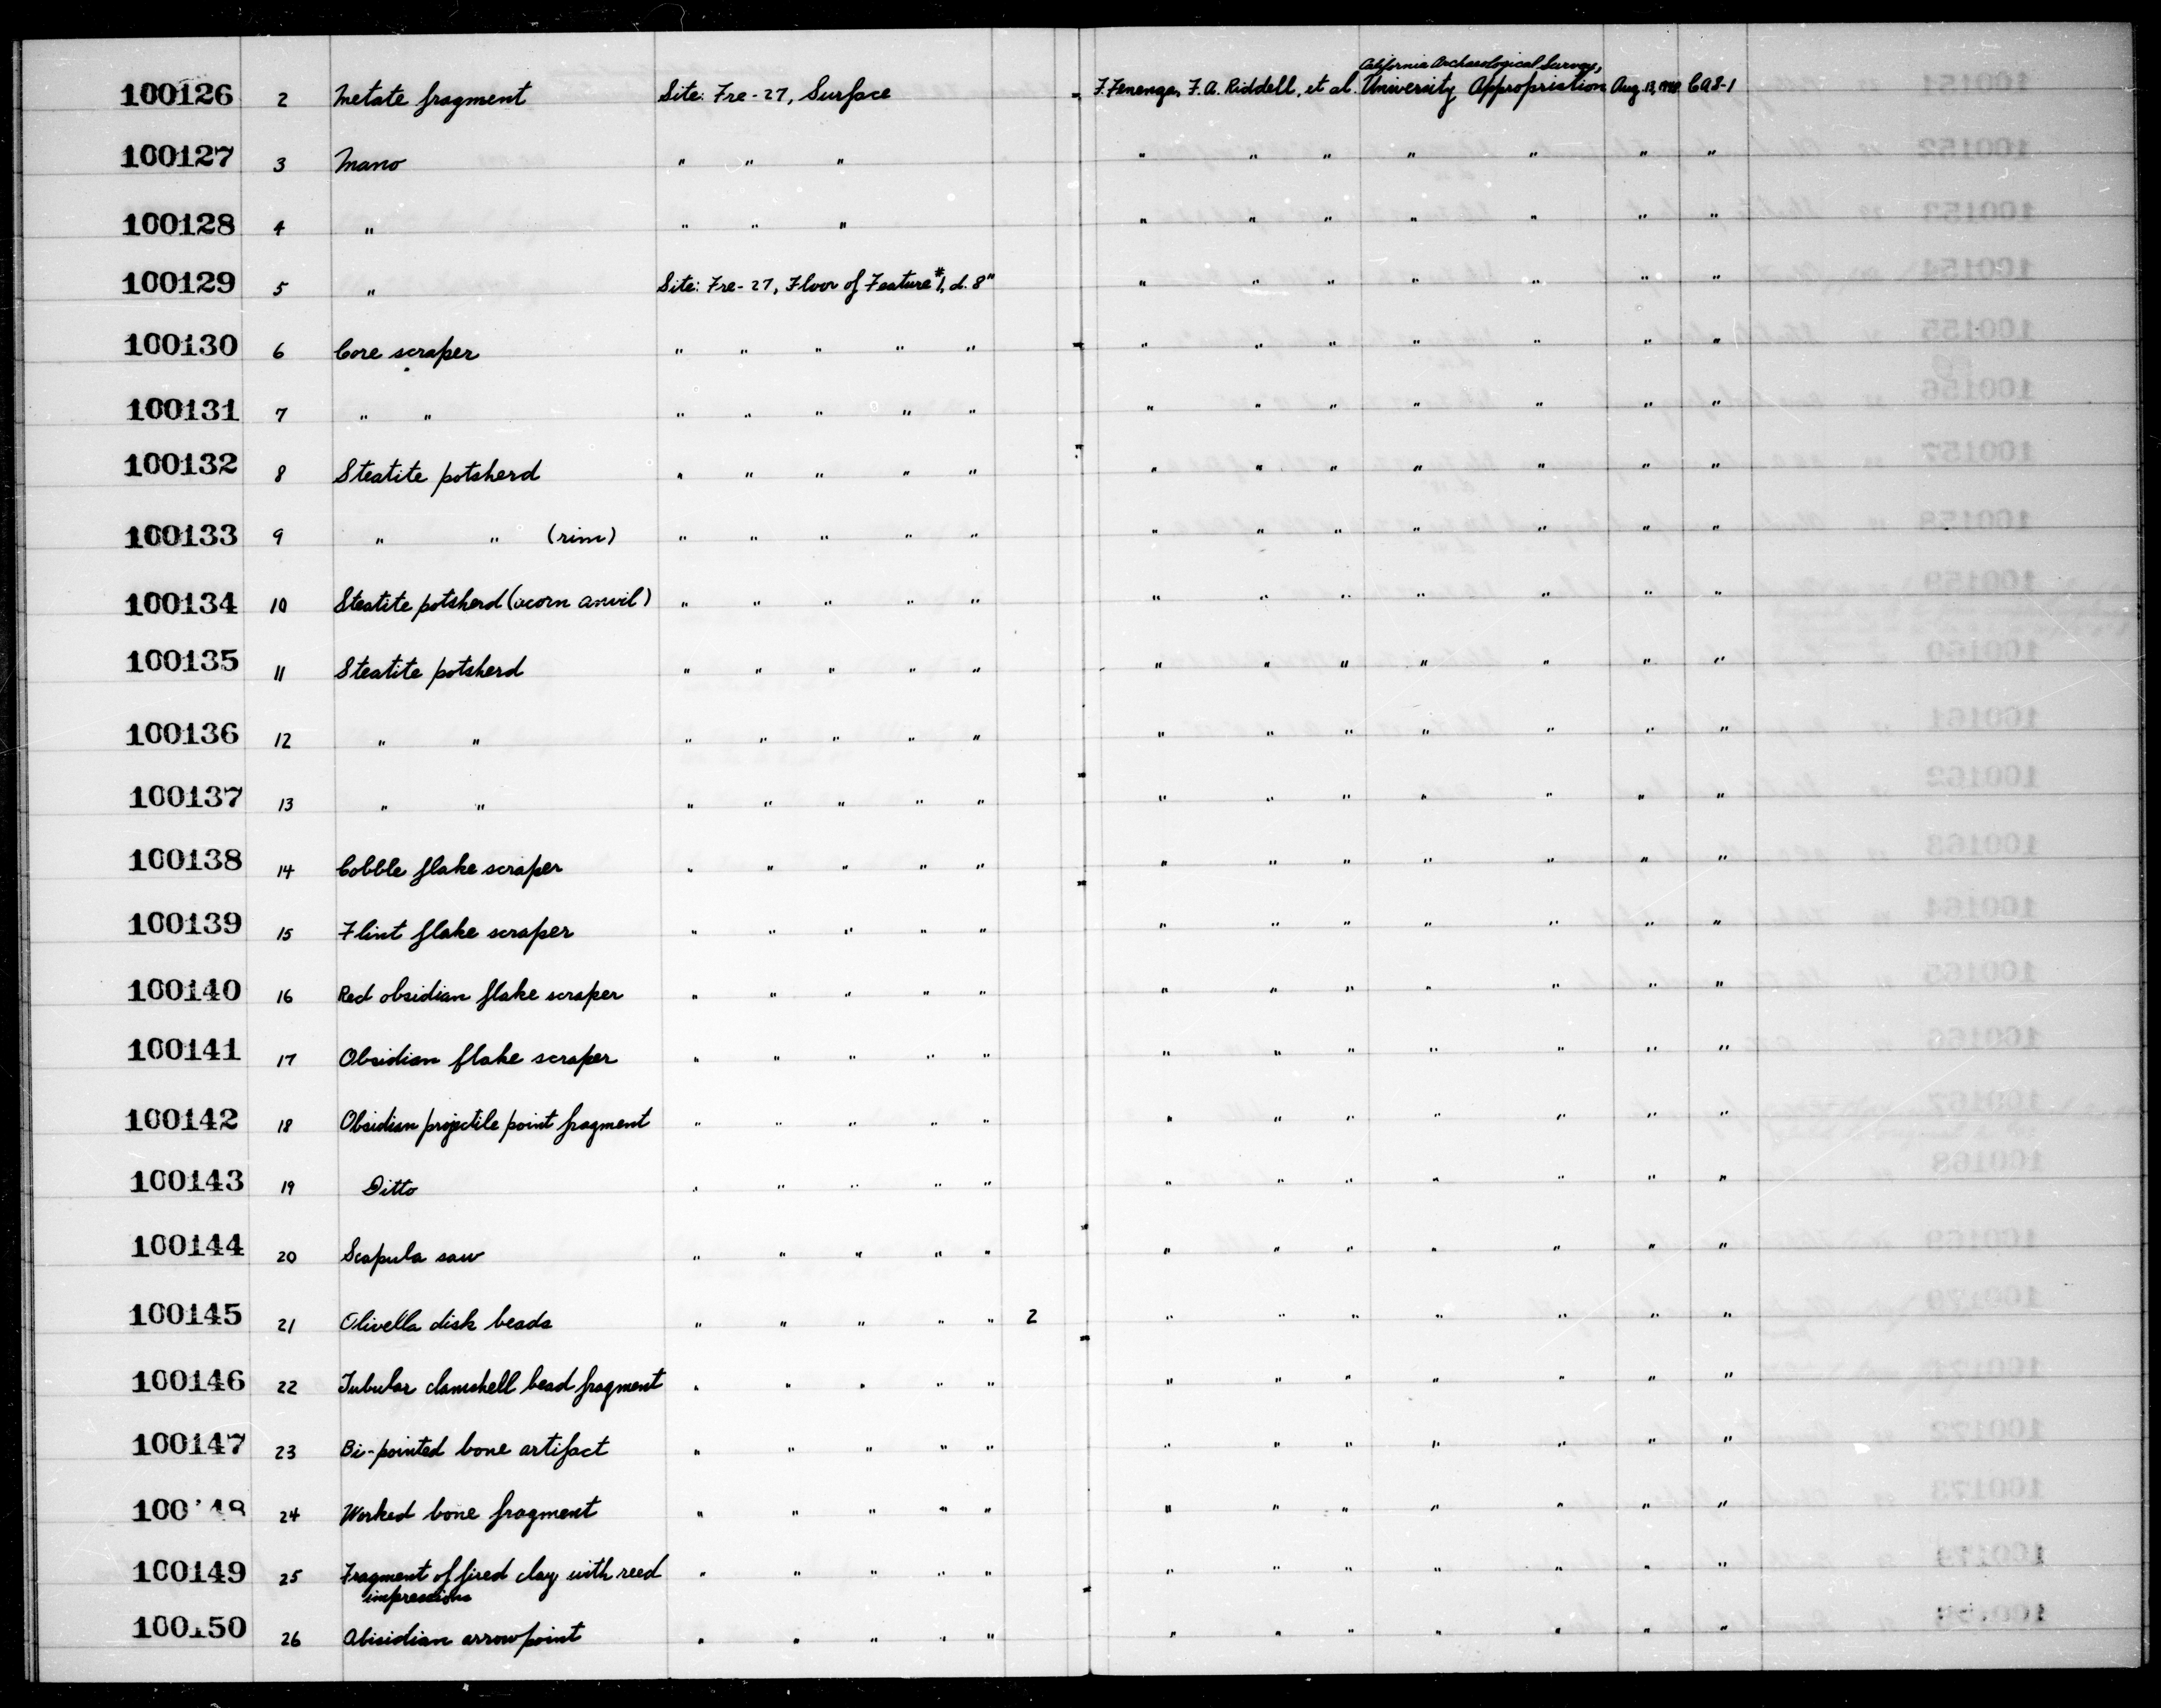 100126 2 Metate fragment Site: Fre-27, Surface F. Fenenga, F. A. Riddell, et al. California Archaeological Survey, University Appropriation Aug. 13, CAS-1
100127 3 Mano " " " " " " " " " "
100128 4 " " " " " " " " " " "
100129 5 " Site: Fre-27, Floor of Feature #1, d. 8" " " " " " " "
100130 6 Core scraper " " " " " " " " " " " "
100131 7 " " " " " " " " " " " " " "
100132 8 Steatite potsherd " " " " " " " " " " " "
100133 9 " " (rim) " " " " " " " " " " " "
100134 10 Steatite potsherd (acorn anvil) " " " " " " " " " " " "
100135 11 Steatite potsherd " " " " " " " " " " " "
100136 12 " " " " " " " " " " " " " "
100137 13 " " " " " " " " " " " " " "
100138 14 Cobble flake scraper " " " " " " " " " " " "
100139 15 Flint flake scraper " " " " " " " " " " " "
100140 16 Red obsidian flake scraper " " " " " " " " " " " "
100141 17 Obsidian flake scraper " " " " " " " " " " " "
100142 18 Obsidian projectile point fragment " " " " " " " " " " " "
100143 19 Ditto " " " " " " " " " " " "
100144 20 Scapula saw " " " " " " " " " " " "
100145 21 Olivella disk beads " " " " " 2 " " " " " " "
100146 22 Tubular clamshell bead fragment " " " " " " " " " " " "
100147 23 Bi-pointed bone artifact " " " " " " " " " " " "
100148 24 Worked bone fragment " " " " " " " " " " " "
100149 25 Fragment of fired clay with reed " " " " " " " " " " " "
impressions
100150 26 Obisidian arrowpoint " " " " " " " " " " " "